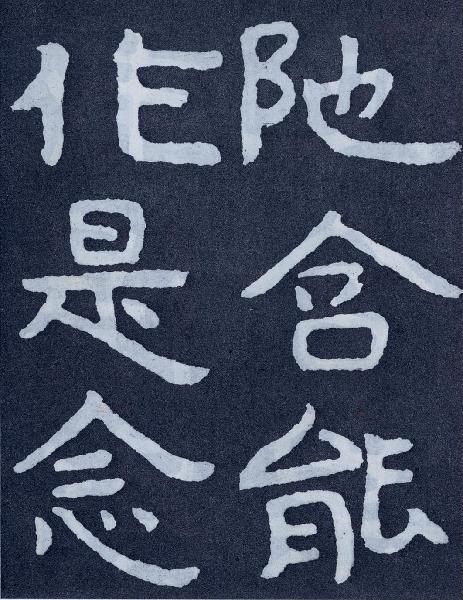 阤含能
作是念